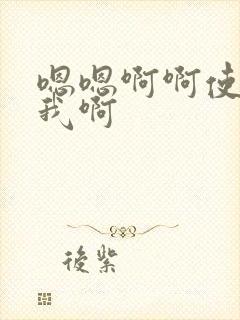 嗯嗯啊啊使
我啊
後紫